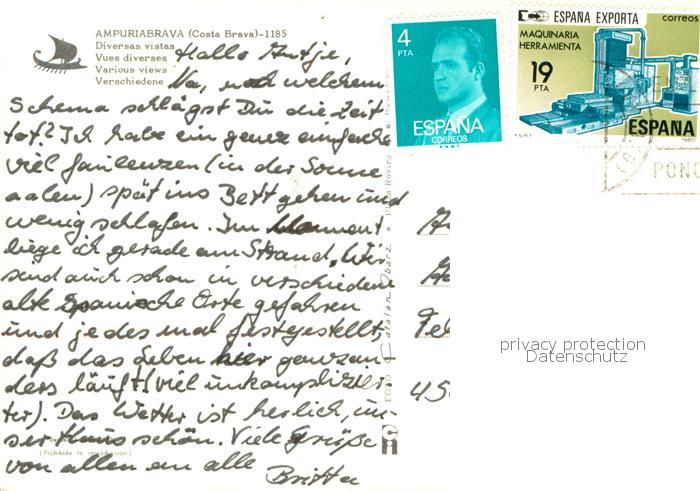 AMPURIABRAVA (Costa Brava)-1185
Diversas vistas
Vues diverses
Various views
Verschiedene
Hallo Antje,
Na, nach welchem
Schema schlägst Du die Zeit
tot? Ich habe ein ganz einfaches
viel faulenzen (in der Sonne
aalen) spät ins Bett gehen und
wenig schlafen. Im Moment
liege ich gerade am Strand. Wir
sind auch schon in verschiedene
alte Spanische Orte gefahren
und jedes mal festgestellt,
daß das Leben hier ganz an-
ders läuft! (viel unkomplizier-
ter). Das Wetter ist herlich, un-
ser Haus schön. Viele Grüße
von allen an alle
Britta
(Prohibida la reproducción)
4
PTA
ESPAÑA
CORREOS
F.N.M.T.
ESPAÑA EXPORTA
correos
MAQUINARIA
HERRAMIENTA
19
PTA
ESPAÑA
F.N.M.T.
1980
PONG
FOTO Catalan Ibarz
Rovira
Fel
450
privacy protection
Datenschutz